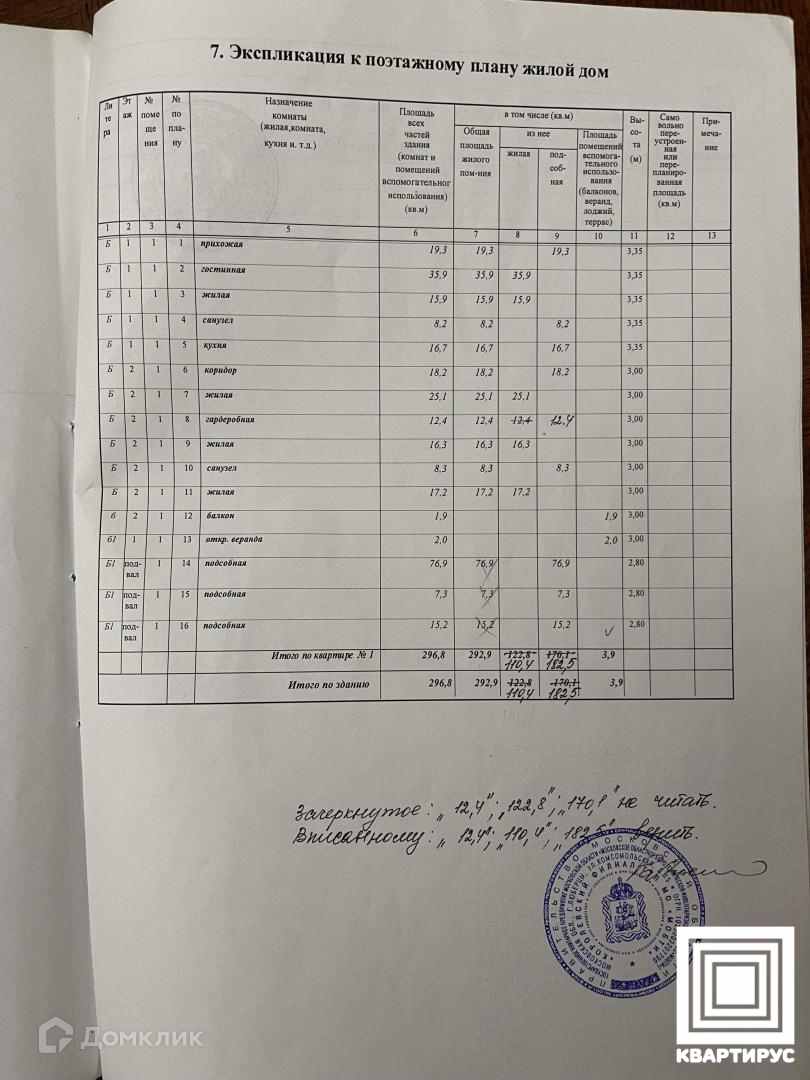 7. Экспликация к поэтажному плану жилой дом
Ли те ра | Эт аж | № поме ще ния | № по пла- ну | Назначение комнаты (жилая,комната, кухня и. т.д.) | Площадь всех частей здания (комнат и помещений вспомогательног использования) (кв.м) | в том числе (кв.м) | Общая площадь жилого пом-ния | из нее | жилая | под- соб- ная | Площадь помещений вспомога- тельного использо- вания (балконов, веранд, лоджий, террас) | Вы- со- та (м) | Само вольно пере- устроен- ная или пере- планиро- ванная площадь (кв.м) | При- меча- ние
1 2 3 4 5 6 7 8 9 10 11 12 13
Б 1 1 1 прихожая 19,3 19,3 19,3 3,35
Б 1 1 2 гостинная 35,9 35,9 35,9 3,35
Б 1 1 3 жилая 15,9 15,9 15,9 3,35
Б 1 1 4 санузел 8,2 8,2 8,2 3,35
Б 1 1 5 кухня 16,7 16,7 16,7 3,35
Б 2 1 6 коридор 18,2 18,2 18,2 3,00
Б 2 1 7 жилая 25,1 25,1 25,1 3,00
Б 2 1 8 гардеробная 12,4 12,4 12,4 12.4 3,00
Б 2 1 9 жилая 16,3 16,3 16,3 3,00
Б 2 1 10 санузел 8,3 8,3 8,3 3,00
Б 2 1 11 жилая 17,2 17,2 17,2 3,00
б 2 1 12 балкон 1,9 1,9 3,00
б1 1 1 13 откр. веранда 2,0 2,0 3,00
Б1 под- вал 1 14 подсобная 76,9 76,9 76,9 2,80
Б1 под- вал 1 15 подсобная 7,3 7,3 7,3 2,80
Б1 под- вал 1 16 подсобная 15,2 15,2 15,2 2,80
Итого по квартире № 1 296,8 292,9 122,8 170,1 3,9
110,4 182,5
Итого по зданию 296,8 292,9 122,8 170,1 3,9
110,4 182,5
Зачеркнутое: „12,4"; „122,8"; „170,1" не читать.
Вписанному: „12,4"; „110,4"; „182,5" верить.
ПРАВИТЕЛЬСТВО МОСКОВСКОЙ ОБЛАСТИ
КОРОЛЕВСКИЙ ФИЛИАЛ
Домклик
КВАРТИРУС